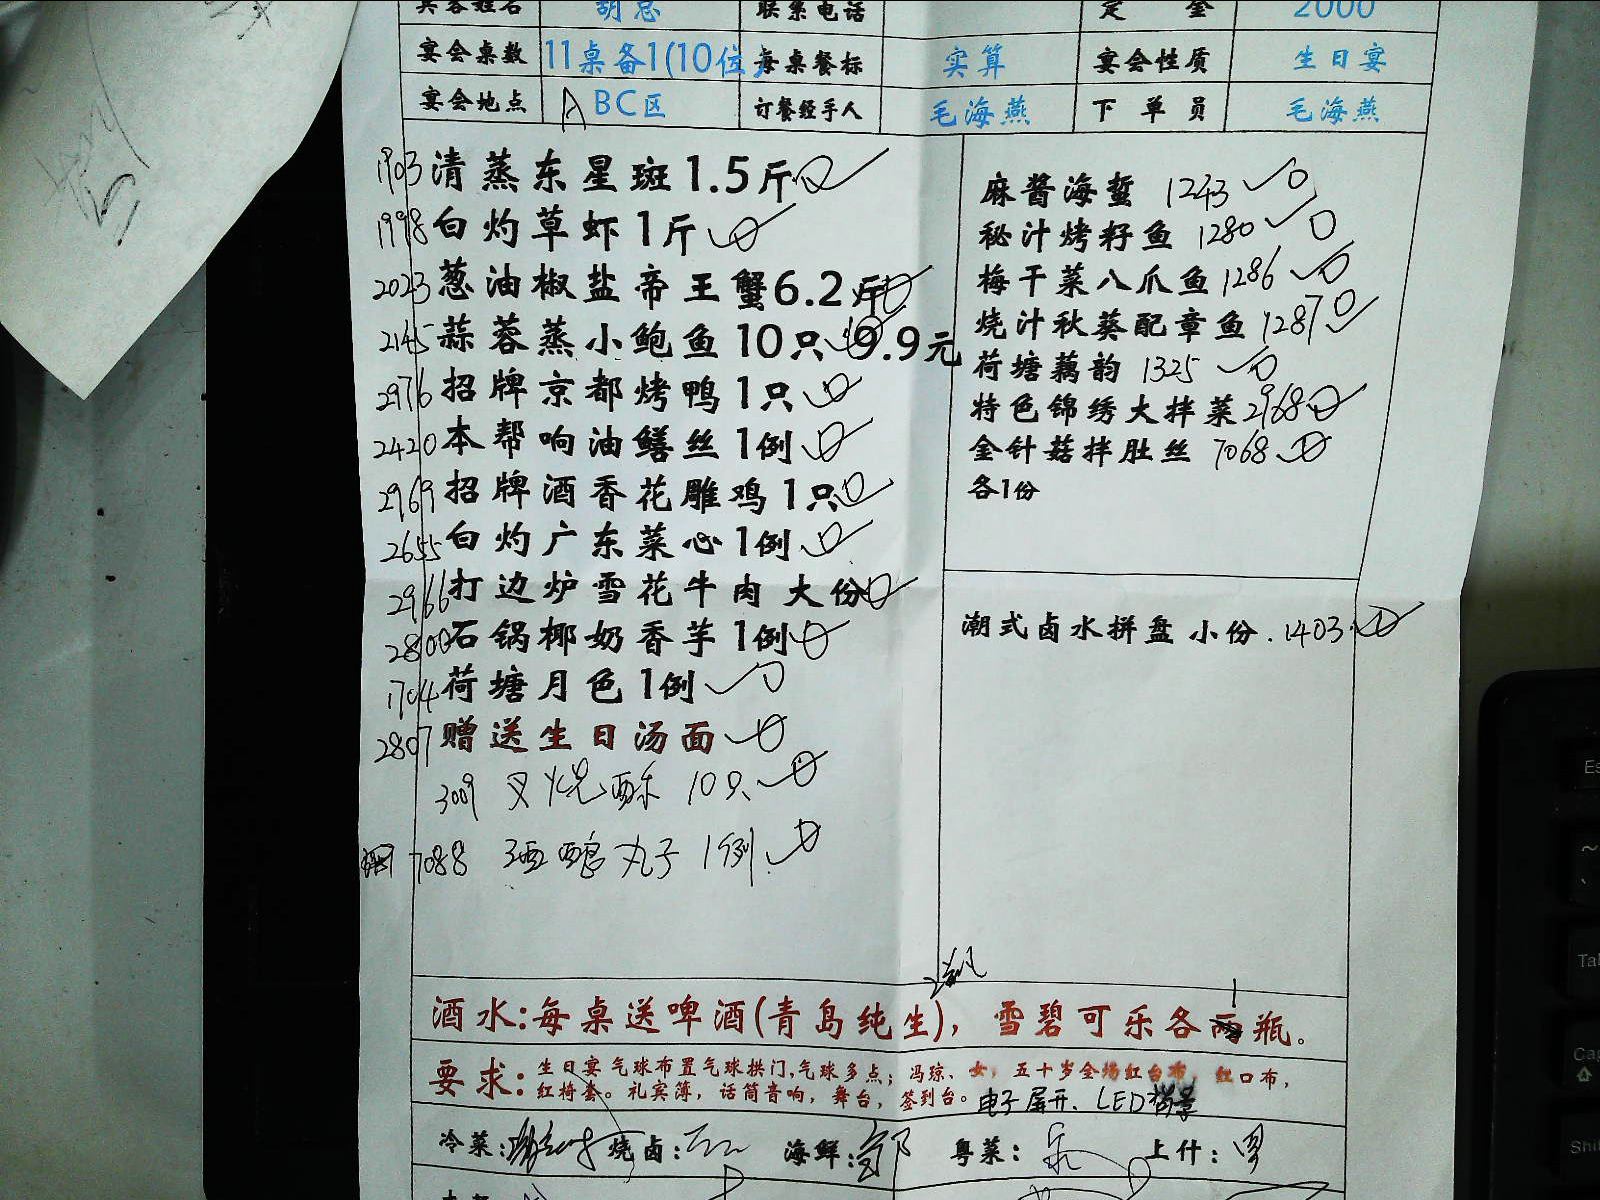 宾客姓名 胡总 联系电话 定金 2000
宴会桌数 11桌备1(10位) 每桌餐标 实算 宴会性质 生日宴
宴会地点 ABC区 订餐经手人 毛海燕 下单员 毛海燕
1903 清蒸东星斑1.5斤
1998 白灼草虾1斤
2023 葱油椒盐帝王蟹6.2斤
2145 蒜蓉蒸小鲍鱼10只 9.9元
2976 招牌京都烤鸭1只
2420 本帮响油鳝丝1例
2969 招牌酒香花雕鸡1只
2655 白灼广东菜心1例
2966 打边炉雪花牛肉 大份
2800 石锅椰奶香芋1例
1704 荷塘月色1例
2807 赠送生日汤面
3009 叉烧酥 10只
7088 酒酿丸子 1例
麻酱海蜇 1243
秘汁烤籽鱼 1280
梅干菜八爪鱼 1286
烧汁秋葵配章鱼 1287
荷塘藕韵 1325
特色锦绣大拌菜 2968
金针菇拌肚丝 7068
各1份
潮式卤水拼盘 小份 1403
酒水:每桌送啤酒(青岛纯生)，雪碧可乐各1瓶。
要求:生日宴 气球布置气球拱门,气球多点；冯琼、女，五十岁全场红台布，红口布，
红椅套。礼宾簿，话筒音响，舞台，签到台。电子屏开、LED背景
冷菜: 烧卤: 海鲜: 粤菜: 上什: